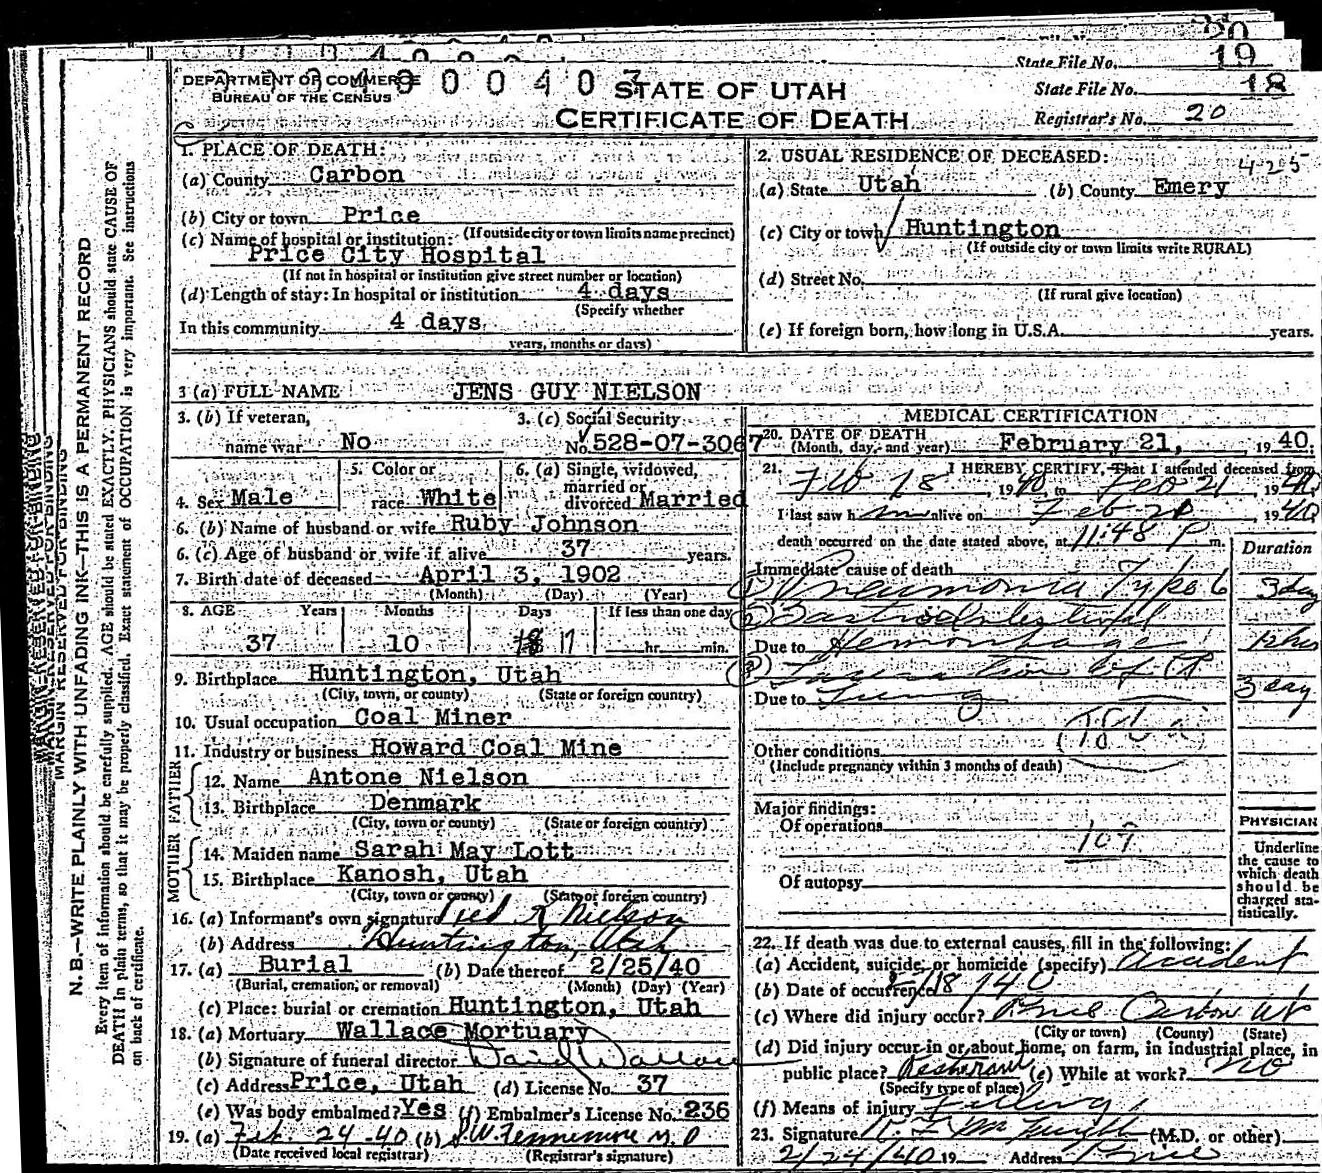 20
State File No. 19
DEPARTMENT OF COMMERCE
BUREAU OF THE CENSUS
STATE OF UTAH
State File No. 18
CERTIFICATE OF DEATH
Registrar's No. 20
1. PLACE OF DEATH:
(a) County Carbon
(b) City or town Price
(If outside city or town limits name precinct)
(c) Name of hospital or institution:
Price City Hospital
(If not in hospital or institution give street number or location)
(d) Length of stay: In hospital or institution 4 days
(Specify whether
In this community 4 days
years, months or days)
2. USUAL RESIDENCE OF DECEASED:
4-25
(a) State Utah (b) County Emery
(c) City or town Huntington
(If outside city or town limits write RURAL)
(d) Street No.
(If rural give location)
(e) If foreign born, how long in U.S.A. years.
3 (a) FULL NAME JENS GUY NIELSON
3. (b) If veteran, 3. (c) Social Security
name war No No. 528-07-3067
4. Sex Male
5. Color or
race White
6. (a) Single, widowed,
married or
divorced Married
6. (b) Name of husband or wife Ruby Johnson
6. (c) Age of husband or wife if alive 37 years.
7. Birth date of deceased April 3, 1902
(Month) (Day) (Year)
8. AGE Years Months Days If less than one day
37 10 18 17 hr. min.
9. Birthplace Huntington, Utah
(City, town, or county) (State or foreign country)
10. Usual occupation Coal Miner
11. Industry or business Howard Coal Mine
FATHER
12. Name Antone Nielson
13. Birthplace Denmark
(City, town or county) (State or foreign country)
MOTHER
14. Maiden name Sarah May Lott
15. Birthplace Kanosh, Utah
(City, town or county) (State or foreign country)
16. (a) Informant's own signature Nielson
(b) Address Huntington, Utah
17. (a) Burial (b) Date thereof 2/25/40
(Burial, cremation, or removal) (Month) (Day) (Year)
(c) Place: burial or cremation Huntington, Utah
18. (a) Mortuary Wallace Mortuary
(b) Signature of funeral director Wallace
(c) Address Price, Utah (d) License No. 37
(e) Was body embalmed? Yes (f) Embalmer's License No. 236
19. (a) Feb. 24-40 (b) S.W. Fennemore M.D
(Date received local registrar) (Registrar's signature)
MEDICAL CERTIFICATION
20. DATE OF DEATH
(Month, day, and year) February 21, 1940.
21. I HEREBY CERTIFY, That I attended deceased from
Feb 18 1940 to Feb 21 1940
I last saw him alive on Feb 21 1940
death occurred on the date stated above, at 11:48 P m.
Duration
Immediate cause of death
(1) Pneumonia Type 6 3 day
(2) Gastrointestinal
Due to Hemorrhage 12 hrs
(3) Laceration of R
Due to Lung 3 day
Other conditions
(Include pregnancy within 3 months of death)
Major findings:
Of operations
107
Of autopsy
PHYSICIAN
Underline
the cause to
which death
should be
charged sta-
tistically.
22. If death was due to external causes, fill in the following:
(a) Accident, suicide, or homicide (specify) Accident
(b) Date of occurrence 2/18/40
(c) Where did injury occur? Price Carbon Ut
(City or town) (County) (State)
(d) Did injury occur in or about home, on farm, in industrial place, in
public place? Resteraunt (e) While at work? No
(Specify type of place)
(f) Means of injury Falling
23. Signature (M.D. or other)
2/24/40 19 Address Price
MARGIN RESERVED FOR BINDING
N. B.—WRITE PLAINLY WITH UNFADING INK—THIS IS A PERMANENT RECORD
Every item of information should be carefully supplied. AGE should be stated EXACTLY. PHYSICIANS should state CAUSE OF
DEATH in plain terms, so that it may be properly classified. Exact statement of OCCUPATION is very important. See instructions
on back of certificate.